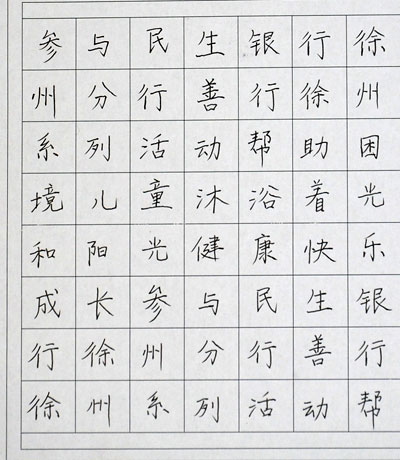 参与民生银行徐
州分行善行徐州
系列活动帮助困
境儿童沐浴着光
和阳光健康快乐
成长参与民生银
行徐州分行善行
徐州系列活动帮